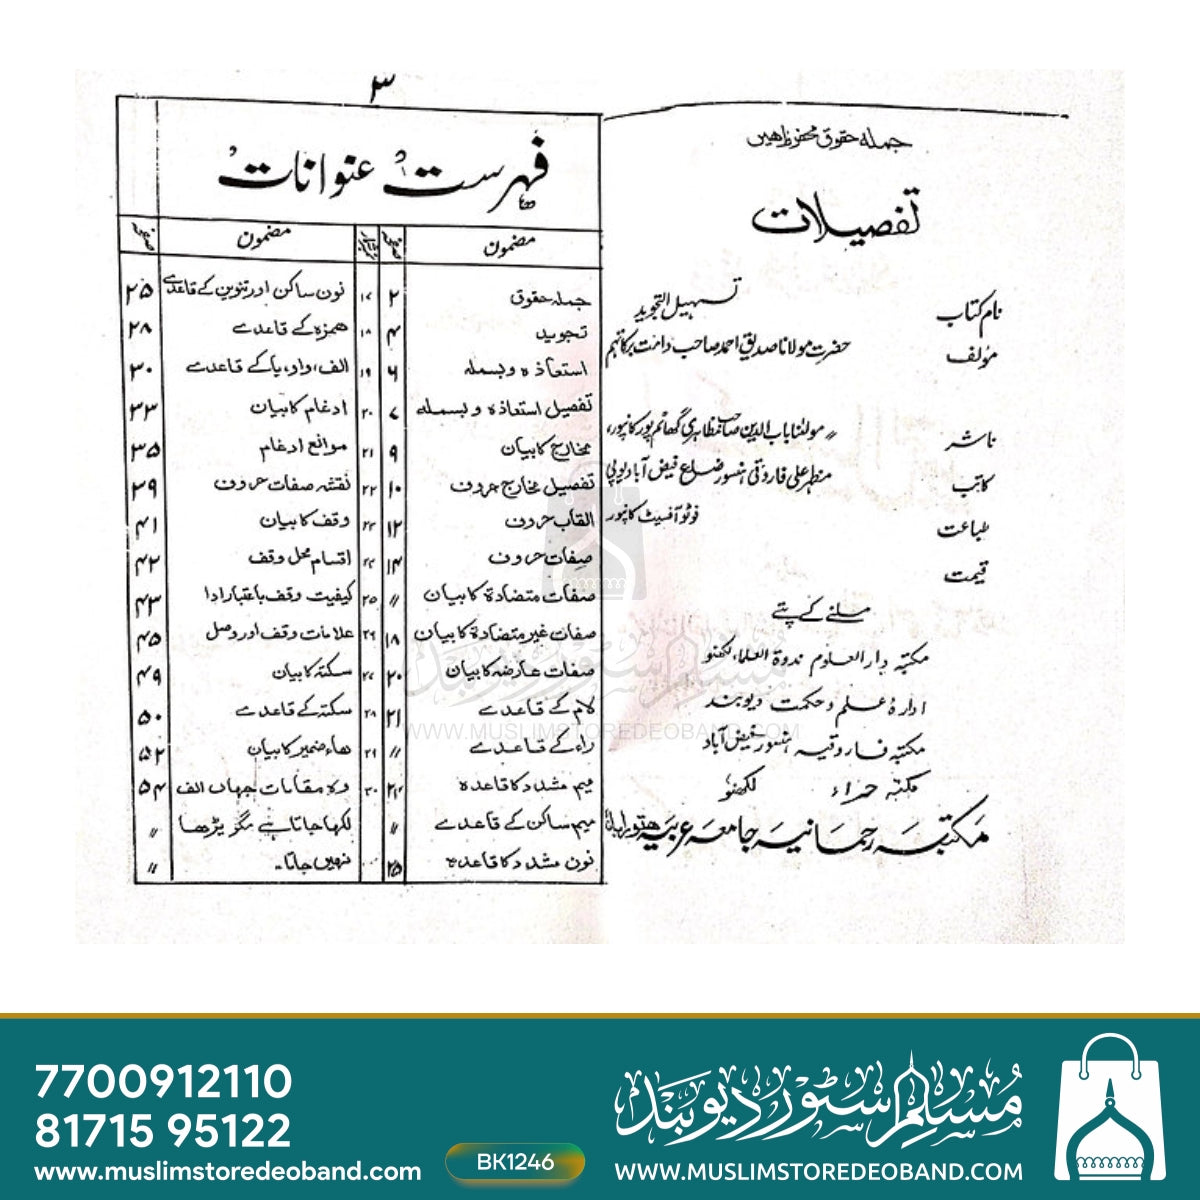 جملہ حقوق محفوظ ہیں
تفصیلات
نام کتاب تسہیل التجوید
مؤلف حضرت مولانا صدیق احمد صاحب دامت برکاتہم
ناشر 〃 مولانا باب الدین صاحب مظاہری گھاٹم پور کانپور،
کاتب مظہر علی فاروقی ہنسور ضلع فیض آباد یوپی
طباعت فوٹو آفسیٹ کانپور
قیمت
ملنے کے پتے
مکتبہ دارالعلوم ندوۃ العلماء لکھنؤ
ادارہ علم و حکمت دیوبند
مکتبہ فاروقیہ ہنسور فیض آباد
مکتبہ حراء لکھنؤ
مکتبہ رحمانیہ جامعہ عربیہ ہتورا باندہ
۳
فہرست عنوانات
مضمون صفحہ
جملہ حقوق ۲
تجوید ۴
استعاذہ و بسملہ ۶
تفصیل استعاذہ و بسملہ ۷
مخارج کا بیان ۹
تفصیل مخارج حروف ۱۰
القاب حروف ۱۲
صفات حروف ۱۴
صفات متضادۃ کا بیان 〃
صفات غیر متضادۃ کا بیان ۱۸
صفات عارضہ کا بیان ۲۰
لام کے قاعدے ۲۱
راء کے قاعدے 〃
میم مشدد کا قاعدہ ۲۴
میم ساکن کے قاعدے 〃
نون مشدد کا قاعدہ ۲۵
نمبر شمار مضمون صفحہ
۱۷ نون ساکن اور تنوین کے قاعدے ۲۵
۱۸ ھمزہ کے قاعدے ۲۸
۱۹ الف، واو، یا کے قاعدے ۳۰
۲۰ ادغام کا بیان ۳۳
۲۱ موانع ادغام ۳۵
۲۲ نقشہ صفات حروف ۳۹
۲۳ وقف کا بیان ۴۱
۲۴ اقسام محل وقف ۴۲
۲۵ کیفیت وقف باعتبار ادا ۴۳
۲۶ علامات وقف اور وصل ۴۵
۲۷ سکتہ کا بیان ۴۹
۲۸ سکتہ کے قاعدے ۵۰
۲۹ ھاء ضمیر کا بیان ۵۲
۳۰ وہ مقامات جہاں الف ۵۴
لکھا جاتا ہے مگر پڑھا 〃
نہیں جاتا۔ 〃
مسلم سٹور دیوبند
WWW.MUSLIMSTOREDEOBAND.COM
7700912110
81715 95122
www.muslimstoredeoband.com
BK1246
مسلم سٹور دیوبند
WWW.MUSLIMSTOREDEOBAND.COM